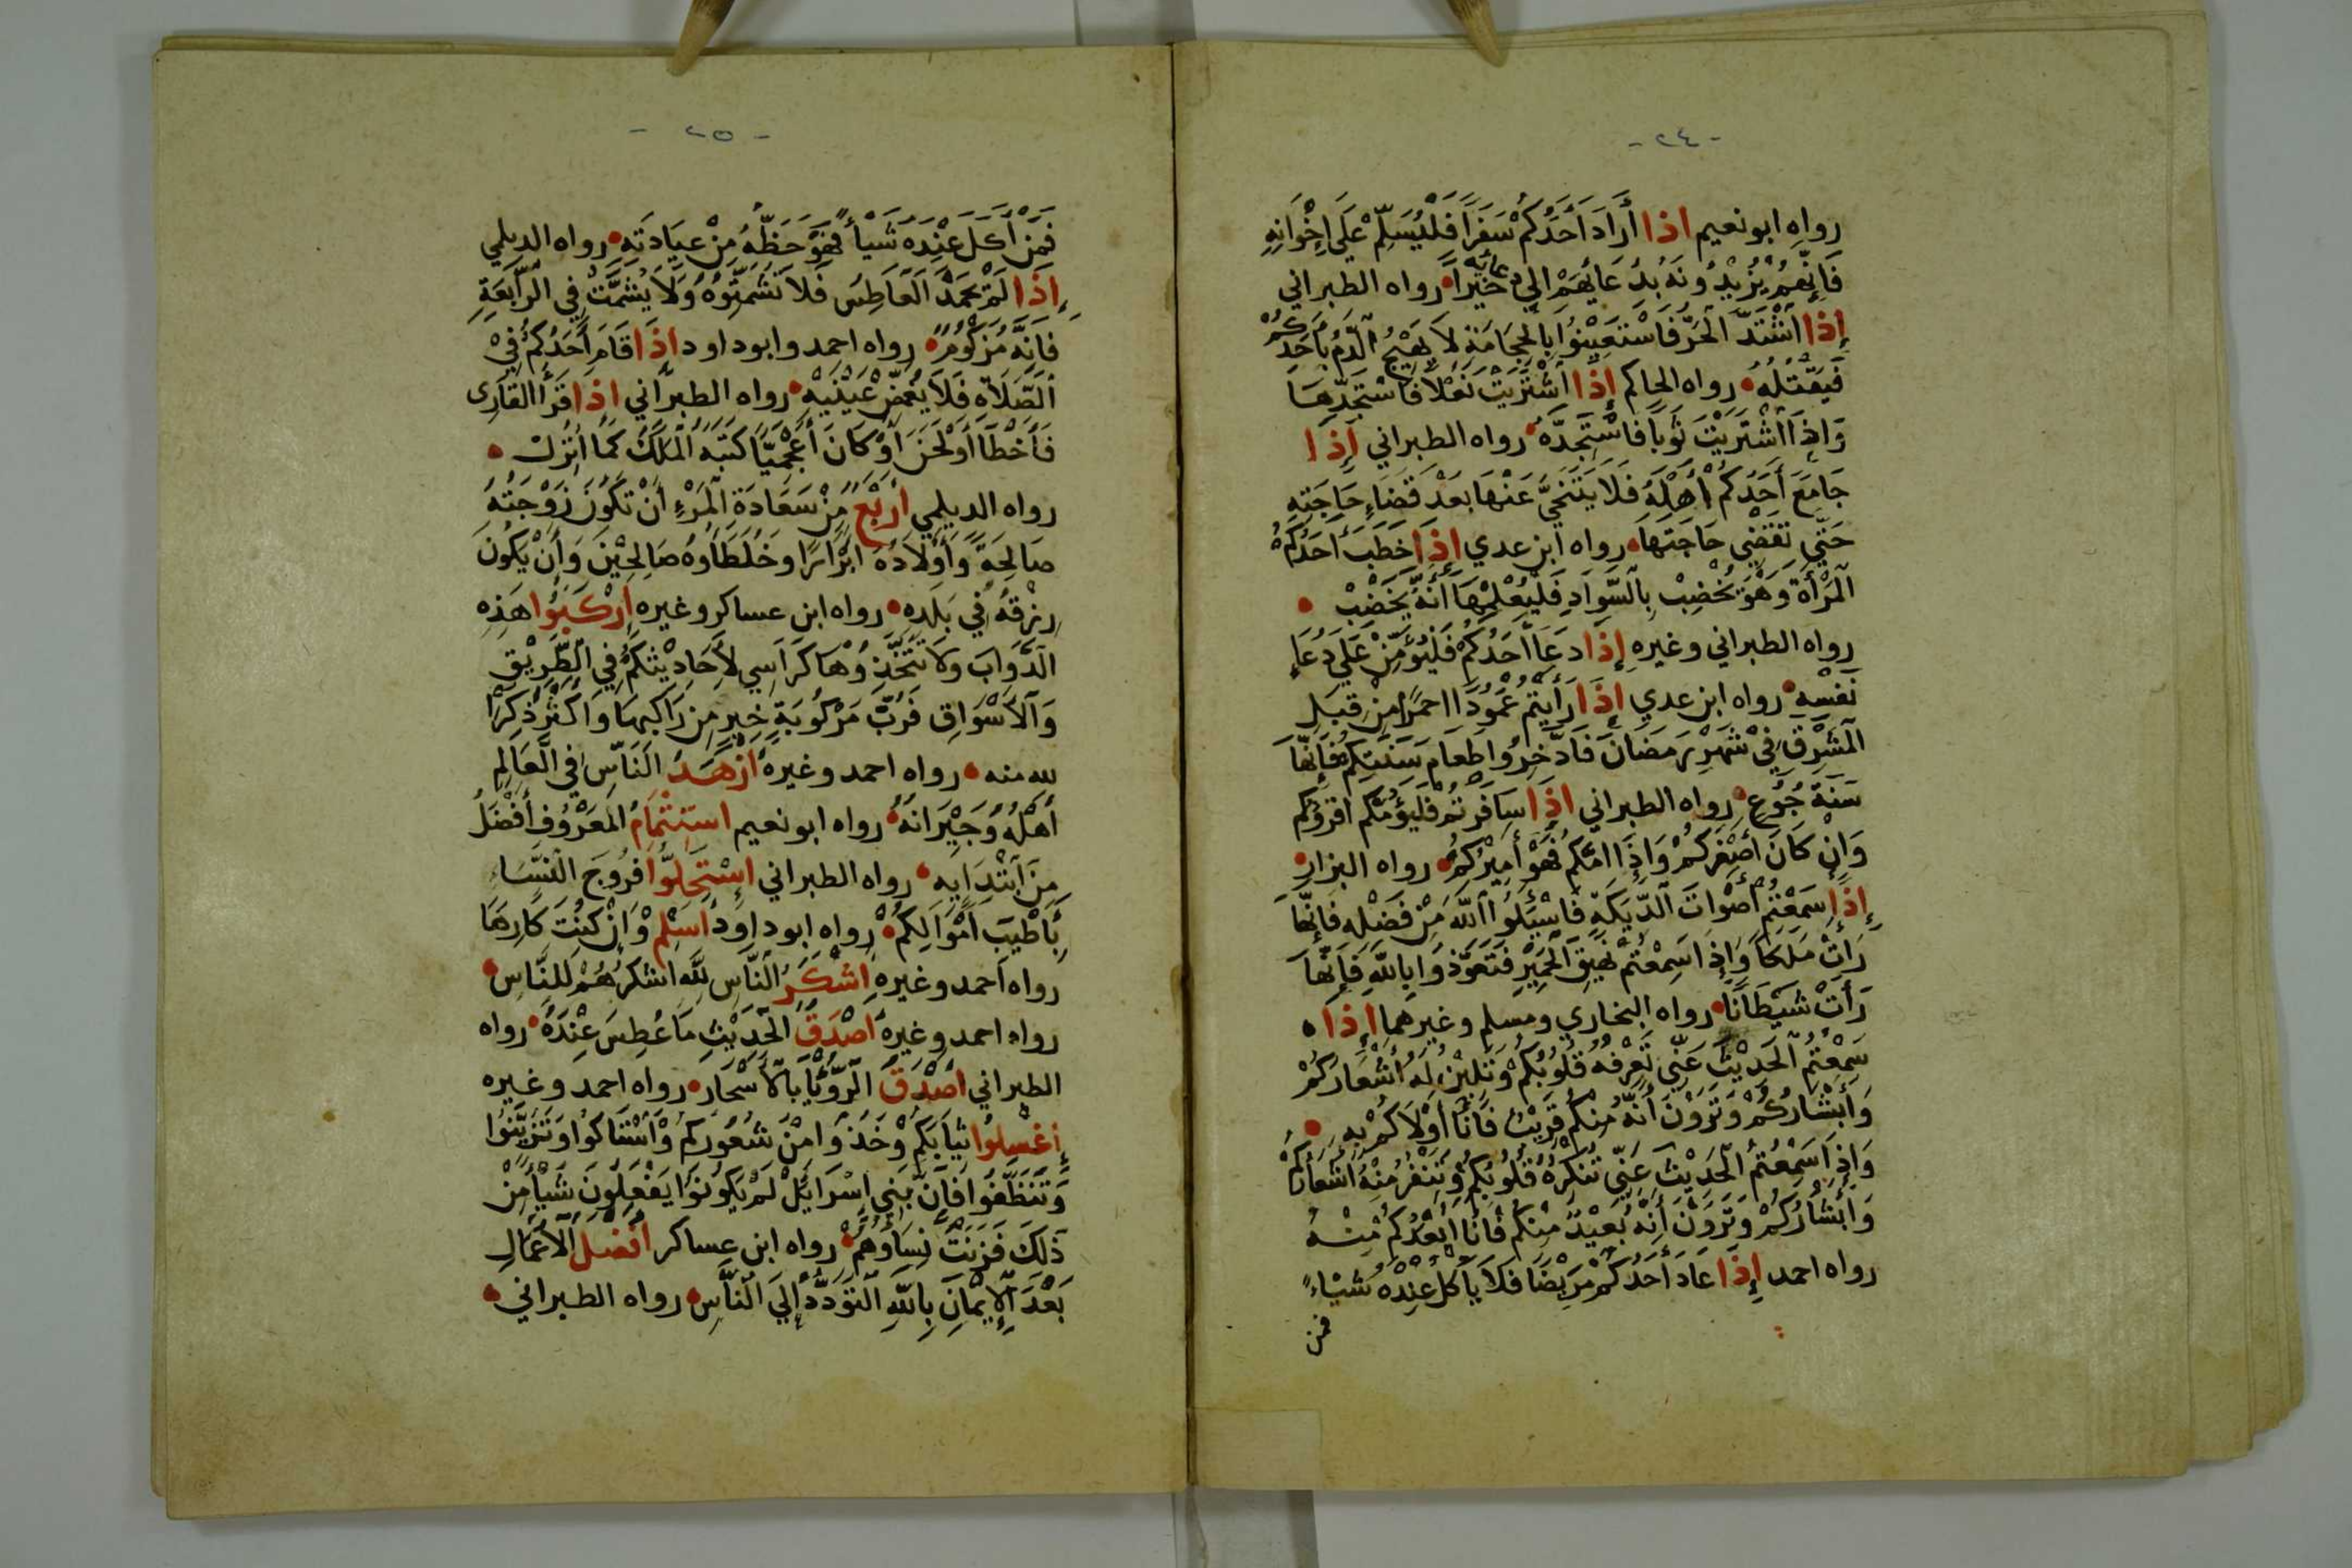 - ٢٤ -
رواه ابو نعيم اذا أَرَادَ أَحَدُكُمْ سَفَرًا فَلْيُسَلِّمْ عَلَى إِخْوَانِهِ
فَإِنَّهُمْ يَزِيْدُونَهُ بِدُعَائِهِمْ إلى دعائه خَيْرًا رواه الطبراني
إِذا اشْتَدَّ الْحَرُّ فَاسْتَعِيْنُوا بِالْحِجَامَةِ لاَ يَهِيْجُ الدَّمُ بِأَحَدِكُمْ
فَيَقْتُلَهُ رواه الحاكم إِذَا اشْتَرَيْتَ نَعْلاً فَاسْتَجِدَّهَا
وَإِذَا اشْتَرَيْتَ ثَوْبًا فَاسْتَجِدَّهُ رواه الطبراني إِذَا
جَامَعَ أَحَدُكُمْ أَهْلَهُ فَلاَ يَتَنَحَّى عَنْهَا بَعْدَ قَضَاءِ حَاجَتِهِ
حَتَّى تَقْضِيَ حَاجَتَهَا رواه ابن عدي إِذَا خَطَبَ أَحَدُكُمْ
الْمَرْأَةَ وَهُوَ يَخْضِبُ بِالسَّوَادِ فَلْيُعْلِمْهَا أَنَّهُ يَخْضِبُ
رواه الطبراني وغيره إِذَا دَعَا أَحَدُكُمْ فَلْيُؤَمِّنْ عَلَى دُعَاءِ
نَفْسِهِ رواه ابن عدي إِذَا رَأَيْتُمْ عَمُودًا احمرًا مِنْ قِبَلِ
الْمَشْرِقِ فِي شَهْرِ رَمَضَانَ فَادَّخِرُوا طَعَامَ سَنَتِكُمْ فَإِنَّهَا
سَنَةُ جُوعٍ رواه الطبراني اذَا سَافَرْتُمْ فَلْيَؤُمَّكُمْ اقرؤكم
وَإِنْ كَانَ أَصْغَرَكُمْ وَإِذَا أَمَّكُمْ فَهُوَ أَمِيْرُكُمْ رواه البزار
إِذَا سَمِعْتُمْ أَصْوَاتَ الدِّيَكَةِ فَاسْئَلُوا اللّٰهَ مِنْ فَضْلِهِ فَإِنَّهَا
رَأَتْ مَلَكًا وَإِذَا سَمِعْتُمْ نَهِيْقَ الْحَمِيْرِ فَتَعَوَّذُوا بِاللّٰهِ فَإِنَّهَا
رَأَتْ شَيْطَانًا رواه البخاري ومسلم وغيرهما إِذَا
سَمِعْتُمُ الْحَدِيْثَ عَنِّي تَعْرِفُهُ قُلُوبُكُمْ وَتَلِيْنُ لَهُ أَشْعَارُكُمْ
وَأَبْشَارُكُمْ وَتَرَوْنَ أَنَّهُ مِنْكُمْ قَرِيْبٌ فَأَنَا أَوْلاَكُمْ بِهِ
وَإِذَا سَمِعْتُمُ الْحَدِيْثَ عَنِّي تُنْكِرُهُ قُلُوبُكُمْ وَتَنْفُرُ مِنْهُ أَشْعَارُكُمْ
وَأَبْشَارُكُمْ وَتَرَوْنَ أَنَّهُ بَعِيْدٌ مِنْكُمْ فَأَنَا أَبْعَدُكُمْ مِنْهُ
رواه احمد إِذَا عَادَ أَحَدُكُمْ مَرِيْضًا فَلاَ يَأْكُلْ عِنْدَهُ شَيْاءً
فمن
- ٢٥ -
فَمَنْ أَكَلَ عِنْدَهُ شَيْأً فَهُوَ حَظُّهُ مِنْ عِيَادَتِهِ رواه الديلمي
إِذَا لَمْ يَحْمَدِ الْعَاطِسُ فَلاَ تُشَمِّتُوهُ وَلاَ يُشَمَّتُ فِي الرَّابِعَةِ
فَإِنَّهُ مَزْكُومٌ رواه احمد وابوداود إِذَا قَامَ أَحَدُكُمْ فِيْ
الصَّلاَةِ فَلاَ يُغْمِضْ عَيْنَيْهِ رواه الطبراني إِذَا قَرَأَ القَارِى
فَأَخْطَأَ أَوْ لَحَنَ أَوْ كَانَ أَعْجَمِيًّا كَتَبَهُ الْمَلَكُ كَمَا أُنْزِلَ
رواه الديلمي أَرْبَعٌ مِنْ سَعَادَةِ الْمَرْءِ أَنْ تَكُونَ زَوْجَتُهُ
صَالِحَةً وَأَوْلاَدُهُ أَبْرَارًا وَخُلَطَاؤُهُ صَالِحِيْنَ وَأَنْ يَكُونَ
رِزْقُهُ فِي بَلَدِهِ رواه ابن عساكر وغيره ارْكَبُوا هَذِهِ
الدَّوَابَ وَلاَ تَتَّخِذُوْهَا كَرَاسِي لأَحَادِيْثِكُمْ فِي الطَّرِيْقِ
وَالأَسْوَاقِ فَرُبَّ مَرْكُوبَةٍ خير مِنْ رَاكِبِهَا وَأَكْثَرُ ذِكْرًا
لله منه رواه احمد وغيره أَزْهَدُ النَّاسِ فِي الْعَالِمِ
أَهْلُهُ وَجِيْرَانُهُ رواه ابو نعيم اسْتِتْمَامُ الْمَعْرُوفِ أَفْضَلُ
مِنَ ابْتِدَايِهِ رواه الطبراني اسْتَحِلُّوا فُرُوجَ النِّسَاءِ
بِأَطْيَبَ أَمْوَالِكُمْ رواه ابوداود أَسْلِمْ وَإِنْ كُنْتَ كَارِهًا
رواه أحمد وغيره أَشْكَرُ النَّاسِ لِلّٰهِ اشكرُهُمْ لِلنَّاسِ
رواه احمد وغيره أَصْدَقُ الْحَدِيْثِ مَا عُطِسَ عِنْدَهُ رواه
الطبراني أَصْدَقُ الرُّؤْيَا بِالأَسْحَارِ رواه احمد وغيره
إِغْسِلُوا ثِيَابَكُمْ وَخُذُوا مِنْ شُعُورِكُمْ وَاسْتَاكُوا وَتَزَيَّنُوا
وَتَنَظَّفُوا فَإِنَّ بَنِي إِسْرَائِلَ لَمْ يَكُونُوا يَفْعَلُونَ شَيْأً مِنْ
ذَلِكَ فَزَنَتْ نِسَاؤُهُمْ رواه ابن عساكر أَفْضَلُ الأَعْمَالِ
بَعْدَ الإِيْمَانِ بِاللّٰهِ التَّوَدُّدُ إِلَى النَّاسِ رواه الطبراني